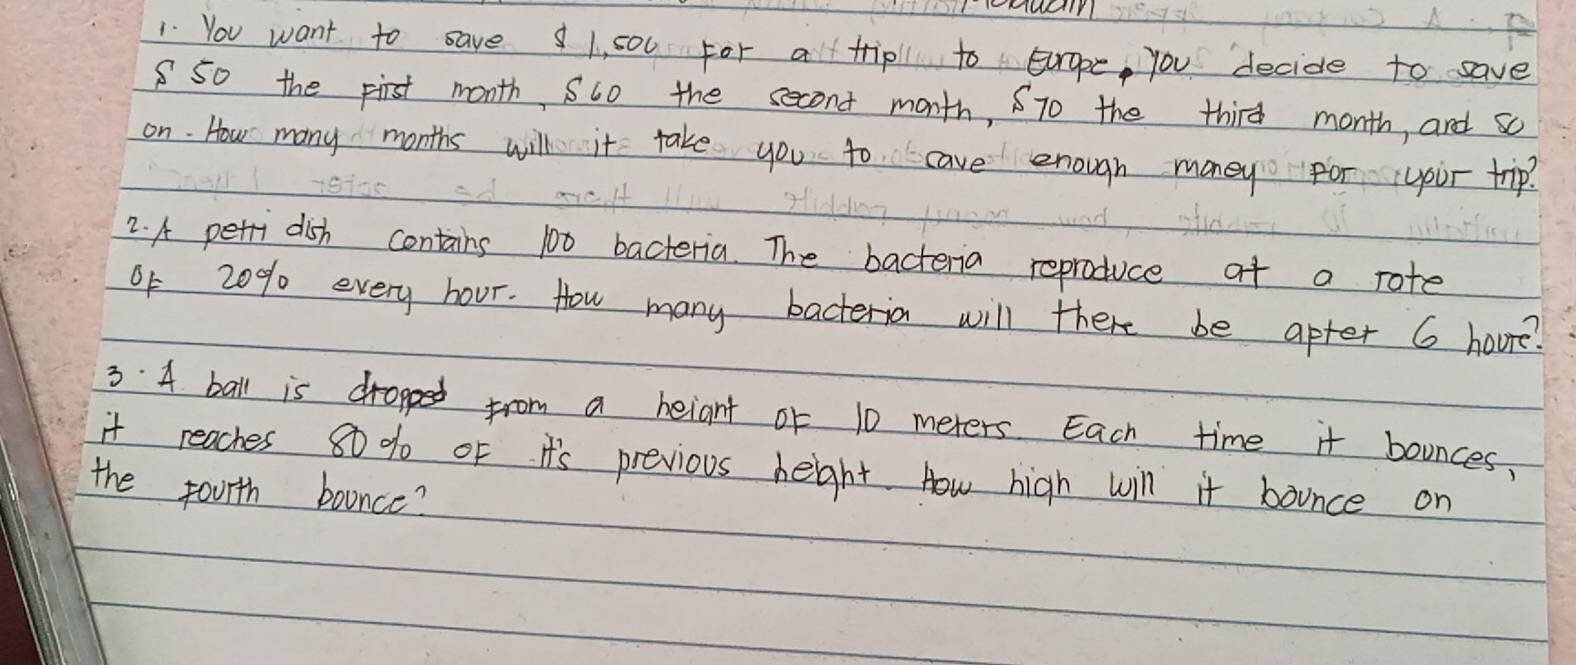 1. You want to save $ 1,500 For a trip to Europe, You decide to save
$ 50 the First month, $60 the second month, $70 the third month, and so
on. How many months will it take you to save enough money For your trip?
2. A petri dish contains 100 bacteria. The bacteria reproduce at a rate
OF 20% every hour. How many bacteria will there be after 6 hours?
3. A ball is dropped From a heignt OF 10 meters. Each time it bounces,
it reaches 80% OF it's previous height. How high will it bounce on
the Fourth bounce?